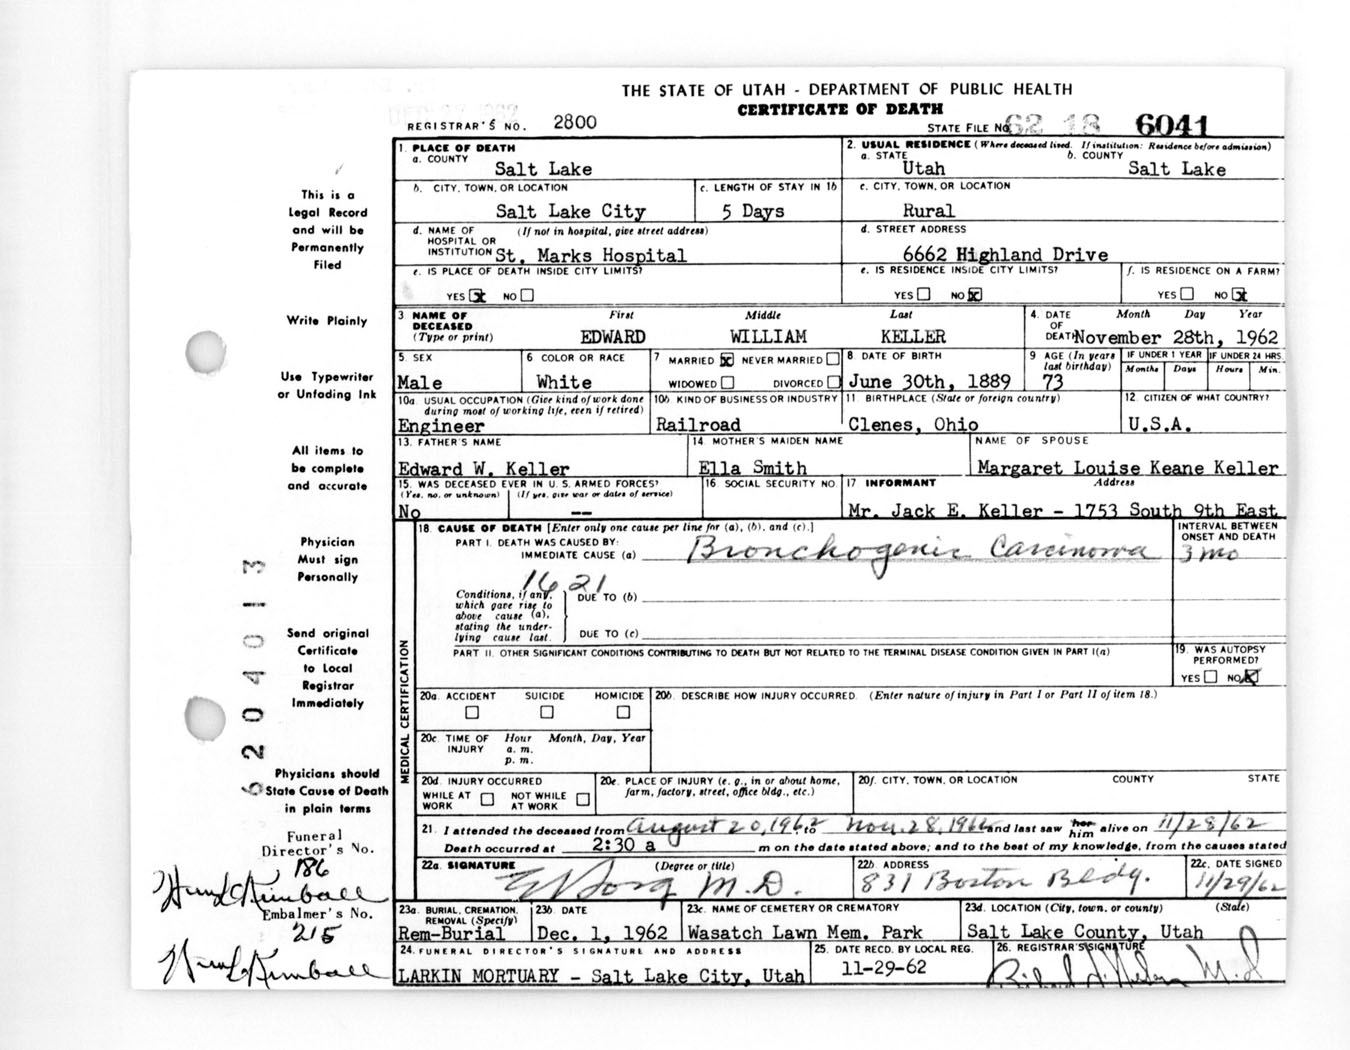 THE STATE OF UTAH - DEPARTMENT OF PUBLIC HEALTH
CERTIFICATE OF DEATH
REGISTRAR'S NO. 2800
STATE FILE NO. 62 18 6041
This is a
Legal Record
and will be
Permanently
Filed
Write Plainly
Use Typewriter
or Unfading Ink
All items to
be complete
and accurate
Physician
Must sign
Personally
Send original
Certificate
to Local
Registrar
Immediately
Physicians should
State Cause of Death
in plain terms
Funeral
Director's No.
186
Embalmer's No.
215
204013
1. PLACE OF DEATH
a. COUNTY
Salt Lake
2. USUAL RESIDENCE (Where deceased lived. If institution: Residence before admission)
a. STATE b. COUNTY
Utah Salt Lake
b. CITY, TOWN, OR LOCATION
Salt Lake City
c. LENGTH OF STAY IN 1b
5 Days
c. CITY, TOWN, OR LOCATION
Rural
d. NAME OF (If not in hospital, give street address)
HOSPITAL OR
INSTITUTION St. Marks Hospital
d. STREET ADDRESS
6662 Highland Drive
e. IS PLACE OF DEATH INSIDE CITY LIMITS?
YES x NO
e. IS RESIDENCE INSIDE CITY LIMITS?
YES NO x
f. IS RESIDENCE ON A FARM?
YES NO x
3 NAME OF First Middle Last
DECEASED
(Type or print) EDWARD WILLIAM KELLER
4. DATE Month Day Year
OF
DEATH November 28th, 1962
5. SEX
Male
6 COLOR OR RACE
White
7 MARRIED x NEVER MARRIED
WIDOWED DIVORCED
8 DATE OF BIRTH
June 30th, 1889
9 AGE (In years
last birthday)
73
IF UNDER 1 YEAR
Months Days
IF UNDER 24 HRS.
Hours Min.
10a. USUAL OCCUPATION (Give kind of work done
during most of working life, even if retired)
Engineer
10b KIND OF BUSINESS OR INDUSTRY
Railroad
11. BIRTHPLACE (State or foreign country)
Clenes, Ohio
12. CITIZEN OF WHAT COUNTRY?
U.S.A.
13. FATHER'S NAME
Edward W. Keller
14 MOTHER'S MAIDEN NAME
Ella Smith
NAME OF SPOUSE
Margaret Louise Keane Keller
15. WAS DECEASED EVER IN U. S. ARMED FORCES?
(Yes, no, or unknown) (If yes, give war or dates of service)
No --
16 SOCIAL SECURITY NO.
17 INFORMANT Address
Mr. Jack E. Keller - 1753 South 9th East
MEDICAL CERTIFICATION
18. CAUSE OF DEATH [Enter only one cause per line for (a), (b), and (c).]
PART I. DEATH WAS CAUSED BY:
IMMEDIATE CAUSE (a) Bronchogenic Carcinoma
INTERVAL BETWEEN
ONSET AND DEATH
3 mo
1621
Conditions, if any,
which gave rise to
above cause (a),
stating the under-
lying cause last.
DUE TO (b)
DUE TO (c)
PART II. OTHER SIGNIFICANT CONDITIONS CONTRIBUTING TO DEATH BUT NOT RELATED TO THE TERMINAL DISEASE CONDITION GIVEN IN PART I(a)
19. WAS AUTOPSY
PERFORMED?
YES NO x
20a. ACCIDENT SUICIDE HOMICIDE
20b. DESCRIBE HOW INJURY OCCURRED. (Enter nature of injury in Part I or Part II of item 18.)
20c. TIME OF Hour Month, Day, Year
INJURY a. m.
p. m.
20d. INJURY OCCURRED
WHILE AT NOT WHILE
WORK AT WORK
20e. PLACE OF INJURY (e. g., in or about home,
farm, factory, street, office bldg., etc.)
20f. CITY, TOWN, OR LOCATION COUNTY STATE
21. I attended the deceased from August 20, 1962 to Nov. 28, 1962 and last saw her him alive on 11/28/62
Death occurred at 2:30 a m on the date stated above; and to the best of my knowledge, from the causes stated
22a. SIGNATURE (Degree or title)
M.D.
22b. ADDRESS
831 Boston Bldg.
22c. DATE SIGNED
11/29/62
23a. BURIAL, CREMATION,
REMOVAL (Specify)
Rem-Burial
23b. DATE
Dec. 1, 1962
23c. NAME OF CEMETERY OR CREMATORY
Wasatch Lawn Mem. Park
23d. LOCATION (City, town, or county) (State)
Salt Lake County, Utah
24. FUNERAL DIRECTOR'S SIGNATURE AND ADDRESS
LARKIN MORTUARY - Salt Lake City, Utah
25. DATE RECD. BY LOCAL REG.
11-29-62
26. REGISTRAR'S SIGNATURE
M.D.